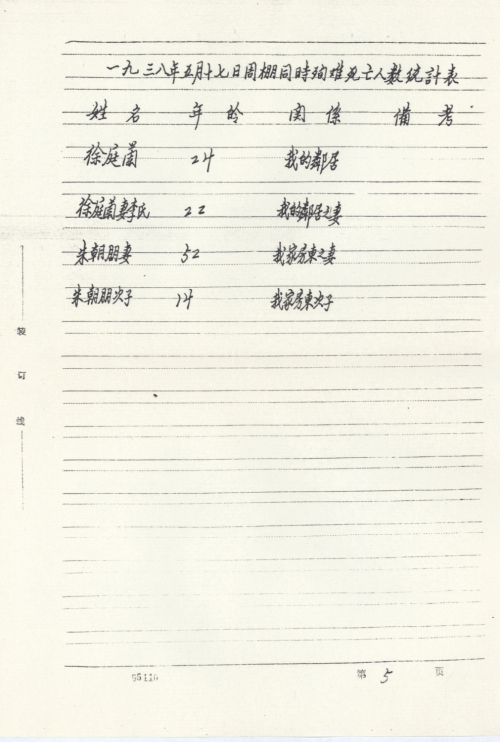 一九三八年五月十七日周棚同時殉难死亡人数統計表
姓名 年龄 関係 備考
徐庭蘭 24 我的鄰居
徐庭蘭妻李氏 22 我的鄰居之妻
朱朝朋妻 52 我家房東之妻
朱朝朋次子 14 我家房東次子
装订线
第 5 页